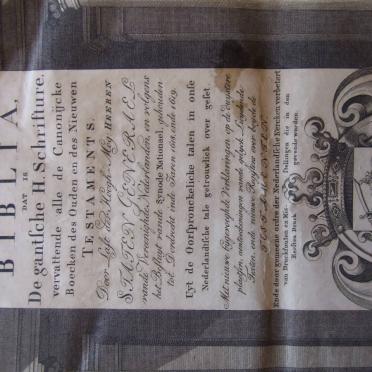 BIBLIA,
DAT IS
De gantsche H. Schrifture,
vervattende alle de Canonijcke
Boecken des Ouden en des Nieuwen
TESTAMENTS.
Door Last der Hoogh-Mog: HEEREN
STATEN GENERAEL
vande Vereenighde Nederlanden, en volgens
het Besluyt vande Synode Nationael, gehouden
tot Dordrecht inde Jaren 1618 ende 1619.
Uyt de Oorspronckelicke talen in onse
Nederlandtsche tale getrouwelick over geset.
Met nieuwe bygevoeghde Verklaringen op de duystere
plaetsen, aenteeckeningen vande gelijck-luydende
Texten, ende nieuwe Registers over beyde de
TESTAMENTEN.
Ende door gemeene ordre der Nederlandtsche Kercken verbetert
van Druckfouten en Mis- Stellingen die in den
Eersten Druck gevonden worden.